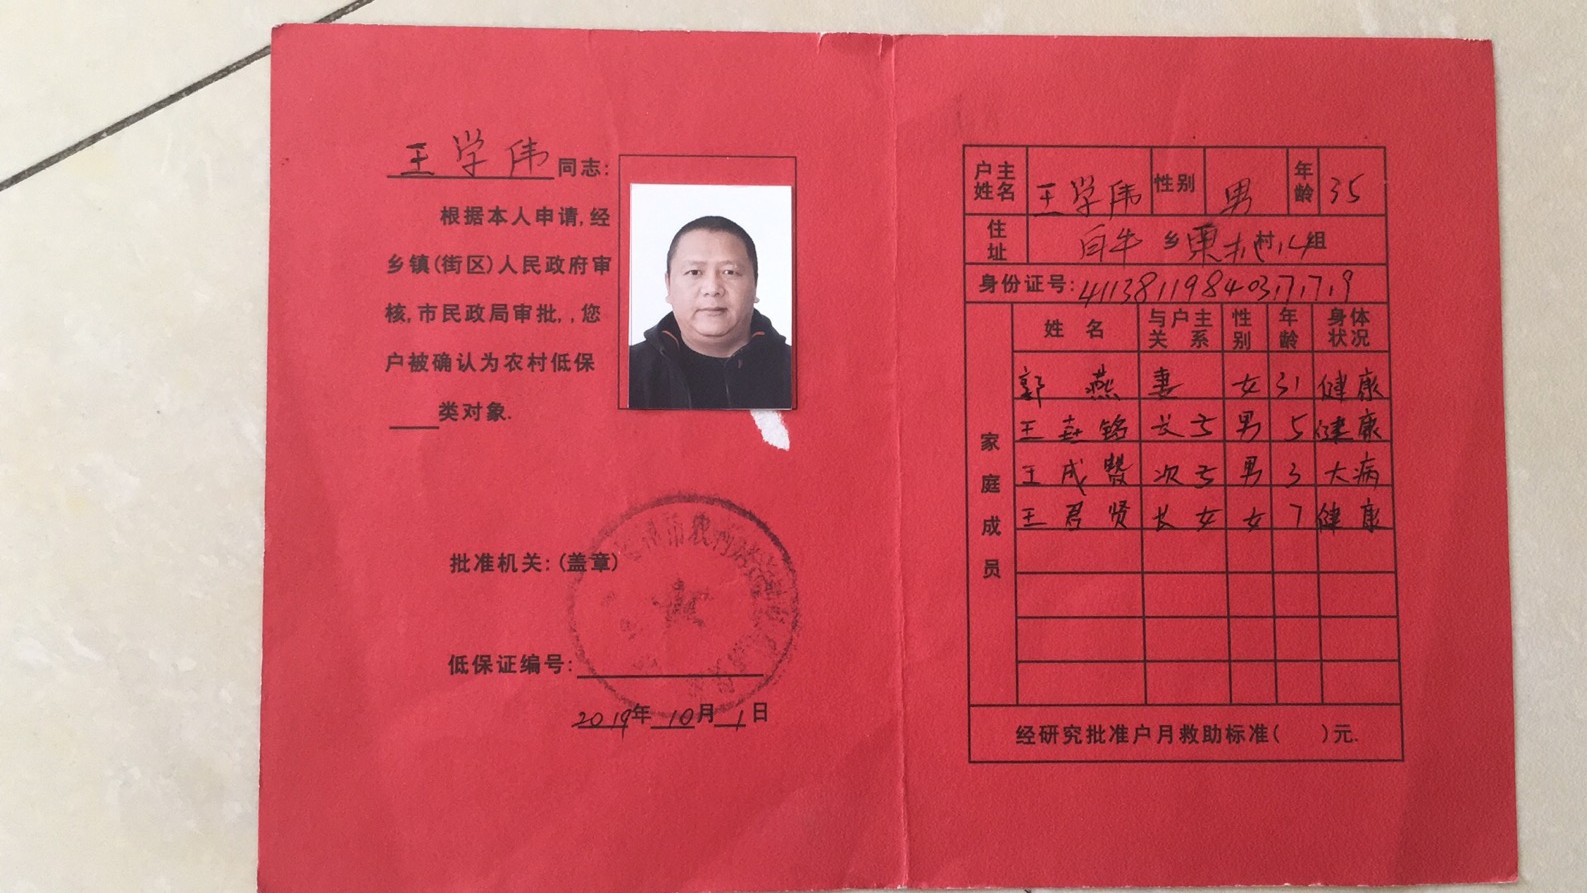 王学伟同志:
根据本人申请,经
乡镇(街区)人民政府审
核,市民政局审批,,您
户被确认为农村低保
类对象.
批准机关:(盖章)
低保证编号:
2019年10月1日
户主姓名 王学伟 性别 男 年龄 35
住址 白牛乡 村 组
身份证号:
家庭成员
姓名 与户主关系 性别 年龄 身体状况
郭燕 妻 女 31 健康
王垚铭 长子 男 5 健康
王成贤 次子 男 3 大病
王君贤 长女 女 7 健康
经研究批准户月救助标准( )元.